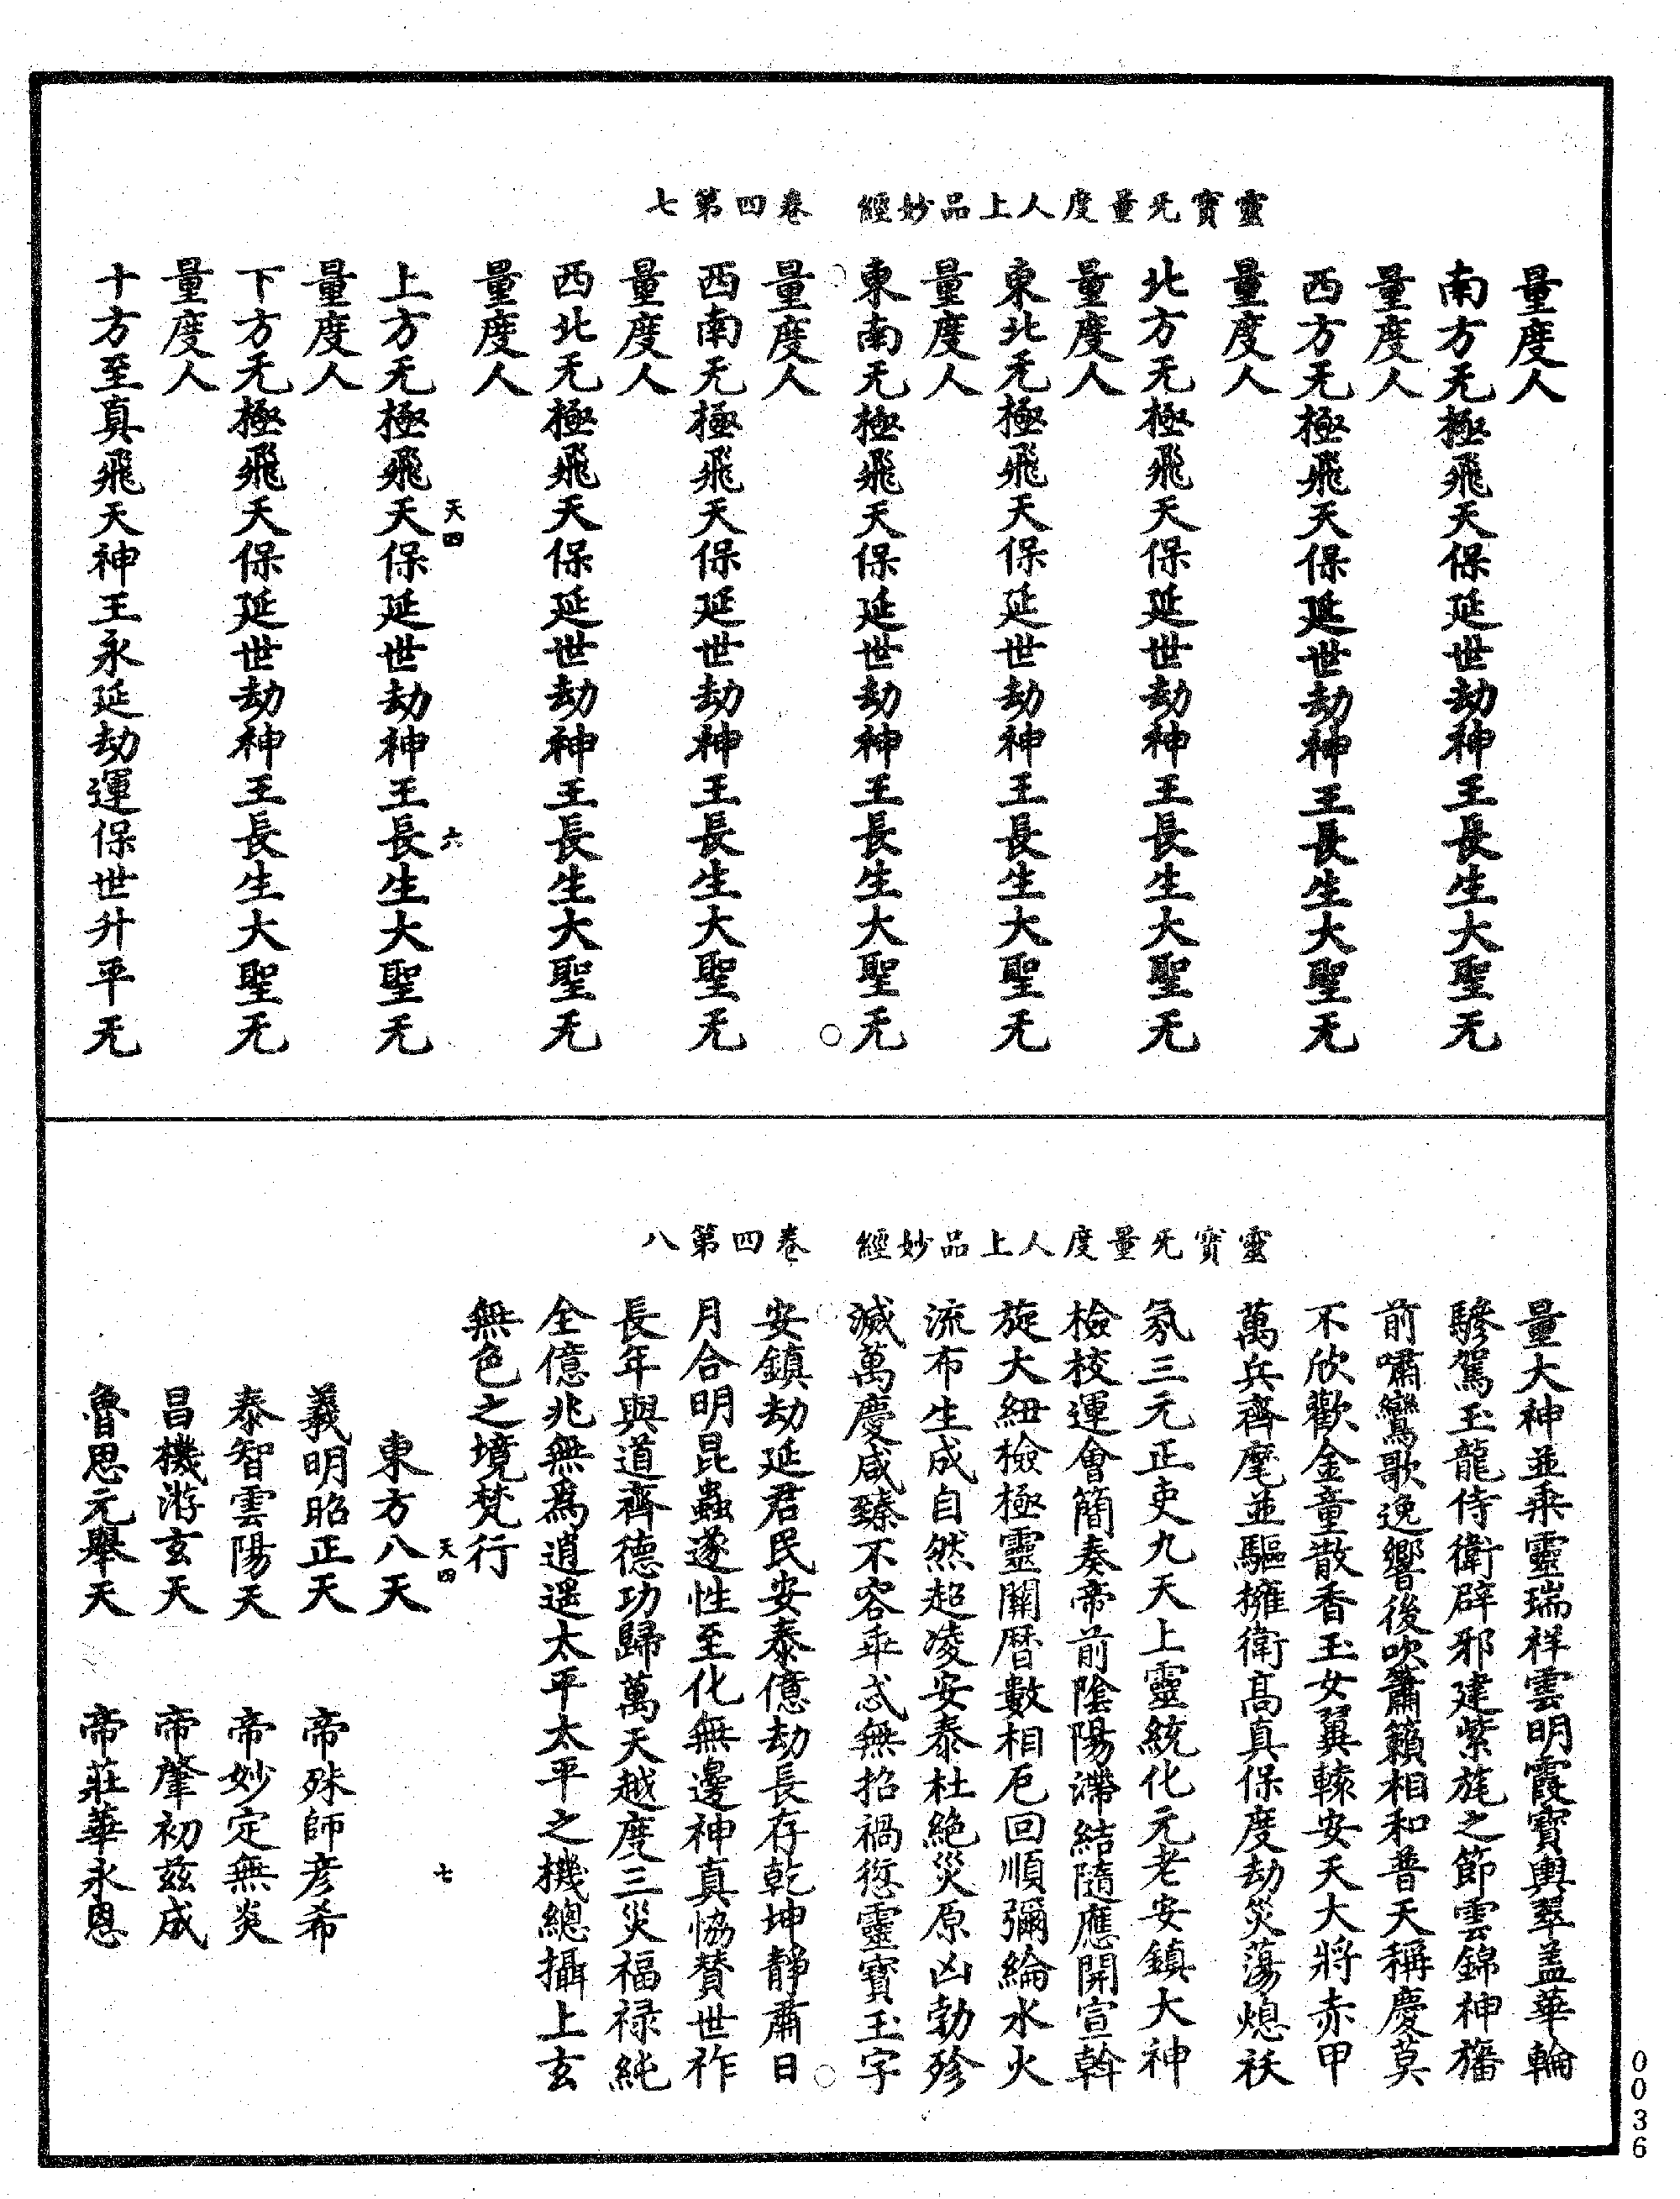 靈寶无量度人上品妙經　卷四第七
量度人
南方无極飛天保延世劫神王長生大聖无
量度人
西方无極飛天保延世劫神王長生大聖无
量度人
北方无極飛天保延世劫神王長生大聖无
量度人
東北无極飛天保延世劫神王長生大聖无
量度人
東南无極飛天保延世劫神王長生大聖无
量度人
西南无極飛天保延世劫神王長生大聖无
量度人
西北无極飛天保延世劫神王長生大聖无
量度人
天四　六
上方无極飛天保延世劫神王長生大聖无
量度人
下方无極飛天保延世劫神王長生大聖无
量度人
十方至真飛天神王永延劫運保世升平无
靈寶无量度人上品妙經　卷四第八
量大神並乘靈瑞祥雲明霞寶輿翠盖華輪
驂駕玉龍侍衛辟邪建紫旄之節雲錦神旛
前嘯鸞歌逸響後吹簫籟相和普天稱慶莫
不欣歡金童散香玉女翼轅安天大將赤甲
萬兵齊麾並驅擁衛高真保度劫災蕩熄祅
氛三元正吏九天上靈統化元老安鎮大神
檢校運會簡奏帝前陰陽滯結隨應開宣斡
旋大紐檢極靈關曆數相厄回順彌綸水火
流布生成自然超凌安泰杜絶災原凶勃殄
滅萬慶咸臻不容乖忒無招禍愆靈寶玉字
安鎮劫延君民安泰億劫長存乾坤靜肅日
月合明昆蟲遂性至化無邊神真恊賛世祚
長年與道齊德功歸萬天越度三災福禄純
全億兆無為逍遥太平太平之機總攝上玄
無色之境梵行
天四　七
東方八天
義明昭正天　帝殊師彦希
泰智雲陽天　帝妙定無炎
昌機游玄天　帝肇初兹成
魯思元舉天　帝莊華永恩
0036